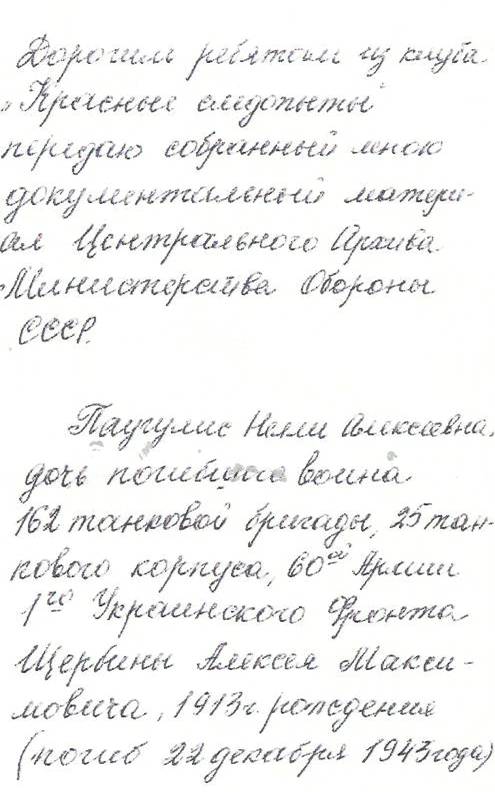 Дорогим ребятам из клуба
"Красные следопыты"
передаю собранный мною
документальный матери-
ал Центрального Архива
Министерства Обороны
СССР.
Паугулис Нелли Алексеевна,
дочь погибшего воина
162 танковой бригады, 25 тан-
кового корпуса, 60ой Армии
1го Украинского Фронта
Щербины Алексея Макси-
мовича, 1913 г. рождения
(погиб 22 декабря 1943 года)